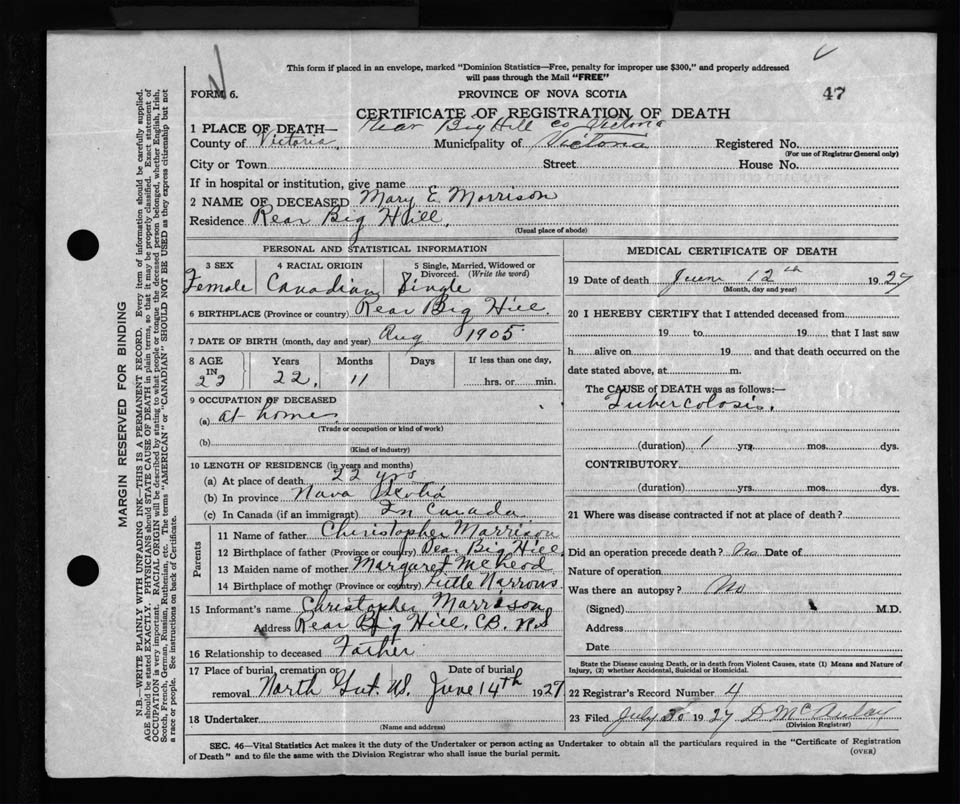 This form if placed in an envelope, marked "Dominion Statistics—Free, penalty for improper use $300," and properly addressed
will pass through the Mail "FREE"
FORM 6.
PROVINCE OF NOVA SCOTIA
47
CERTIFICATE OF REGISTRATION OF DEATH
1 PLACE OF DEATH— Rear Big Hill co Victoria
County of Victoria, Municipality of Victoria Registered No.
(For use of Registrar General only)
City or Town Street House No.
If in hospital or institution, give name
2 NAME OF DECEASED Mary E Morrison
Residence Rear Big Hill,
(Usual place of abode)
PERSONAL AND STATISTICAL INFORMATION
3 SEX 4 RACIAL ORIGIN 5 Single, Married, Widowed or Divorced. (Write the word)
Female Canadian Single
6 BIRTHPLACE (Province or country) Rear Big Hill.
7 DATE OF BIRTH (month, day and year) Aug 1905
8 AGE IN Years Months Days If less than one day,
22 22, 11 hrs. or min.
9 OCCUPATION OF DECEASED
(a) at home
(Trade or occupation or kind of work)
(b)
(Kind of industry)
10 LENGTH OF RESIDENCE (in years and months)
(a) At place of death 22 yrs
(b) In province Nova Scotia
(c) In Canada (if an immigrant) In Canada
Parents
11 Name of father Christopher Morrison
12 Birthplace of father (Province or country) Rear Big Hill
13 Maiden name of mother Margaret McLeod
14 Birthplace of mother (Province or country) Little Narrows
15 Informant's name Christopher Morrison
Address Rear Big Hill, CB. NS
16 Relationship to deceased Father
17 Place of burial, cremation or Date of burial
removal North Gut June 14th 1927
18 Undertaker
(Name and address)
MEDICAL CERTIFICATE OF DEATH
19 Date of death June 12th 1927
(Month, day and year)
20 I HEREBY CERTIFY that I attended deceased from
19 to 19, that I last saw
h alive on 19 and that death occurred on the
date stated above, at m.
The CAUSE of DEATH was as follows:—
Tubercolosis.
(duration) 1 yrs. mos. dys.
CONTRIBUTORY
(duration) yrs. mos. dys.
21 Where was disease contracted if not at place of death?
Did an operation precede death? No Date of
Nature of operation
Was there an autopsy? No
(Signed) M.D.
Address
Date
State the Disease causing Death, or in death from Violent Causes, state (1) Means and Nature of
Injury, (2) whether Accidental, Suicidal or Homicidal.
22 Registrar's Record Number 4
23 Filed July 1927 D McAulay
(Division Registrar)
SEC. 46—Vital Statistics Act makes it the duty of the Undertaker or person acting as Undertaker to obtain all the particulars required in the "Certificate of Registration
of Death" and to file the same with the Division Registrar who shall issue the burial permit.
(OVER)
MARGIN RESERVED FOR BINDING
N.B.—WRITE PLAINLY WITH UNFADING INK—THIS IS A PERMANENT RECORD. Every item of information should be carefully supplied.
AGE should be stated EXACTLY. PHYSICIANS should STATE CAUSE OF DEATH in plain terms, so that it may be properly classified. Exact statement of
OCCUPATION is very important. RACIAL ORIGIN will be described by stating to what people or tongue the deceased person belonged, whether English, Irish,
Scotch, French, German, Russian, Ruthenian, etc. The terms "AMERICAN" or "CANADIAN" SHOULD NOT BE USED as they express citizenship but not
a race or people. See instructions on back of Certificate.